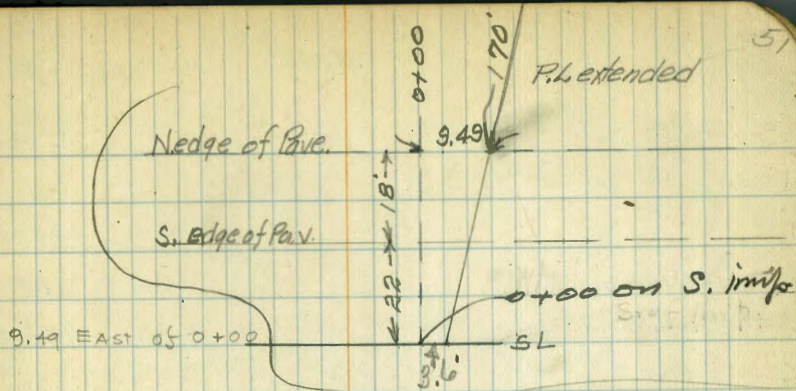 51
0+00
170'
P.L extended
N. edge of Pave.
9.49
18'
S. edge of Pav.
22
0+00 on S.
9.49 EAST of 0+00
SL
3.6